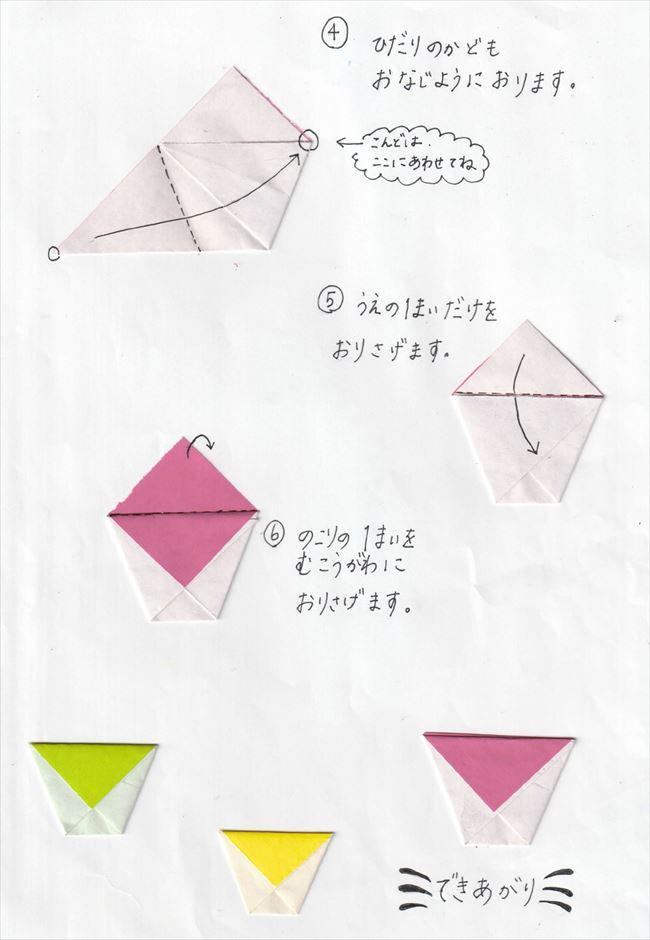 ④ ひだりのかども
おなじようにおります。
こんどは、
ここにあわせてね
⑤ うえの1まいだけを
おりさげます。
⑥ のこりの1まいを
むこうがわに
おりさげます。
できあがり